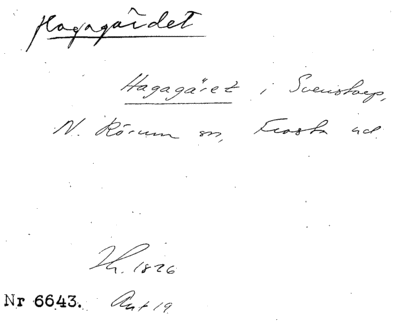 Hagagärdet
Hagagäret i Svenstorp,
N. Rörum sn, Frosta hd.
1826
Nr 6643. Ant 19